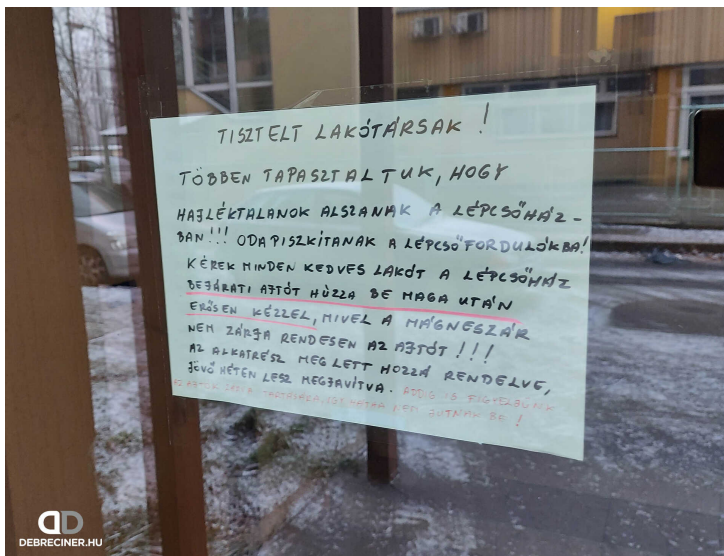 TISZTELT LAKÓTÁRSAK!
TÖBBEN TAPASZTALTUK, HOGY
HAJLÉKTALANOK ALSZANAK A LÉPCSŐHÁZ-
BAN!!! ODAPISZKÍTANAK A LÉPCSŐFORDULÓKBA!
KÉREK MINDEN KEDVES LAKÓT A LÉPCSŐHÁZ
BEJÁRATI AJTÓT HÚZZA BE MAGA UTÁN
ERŐSEN KÉZZEL, MIVEL A MÁGNESZÁR
NEM ZÁRJA RENDESEN AZ AJTÓT!!!
AZ ALKATRÉSZ MEG LETT HOZZÁ RENDELVE,
JÖVŐ HÉTEN LESZ MEGJAVÍTVA. ADDIG IS FIGYELJÜNK
AZ AJTÓK TARTÁSÁRA, HÁTHA NEM JUTNAK BE!
DEBRECINER.HU